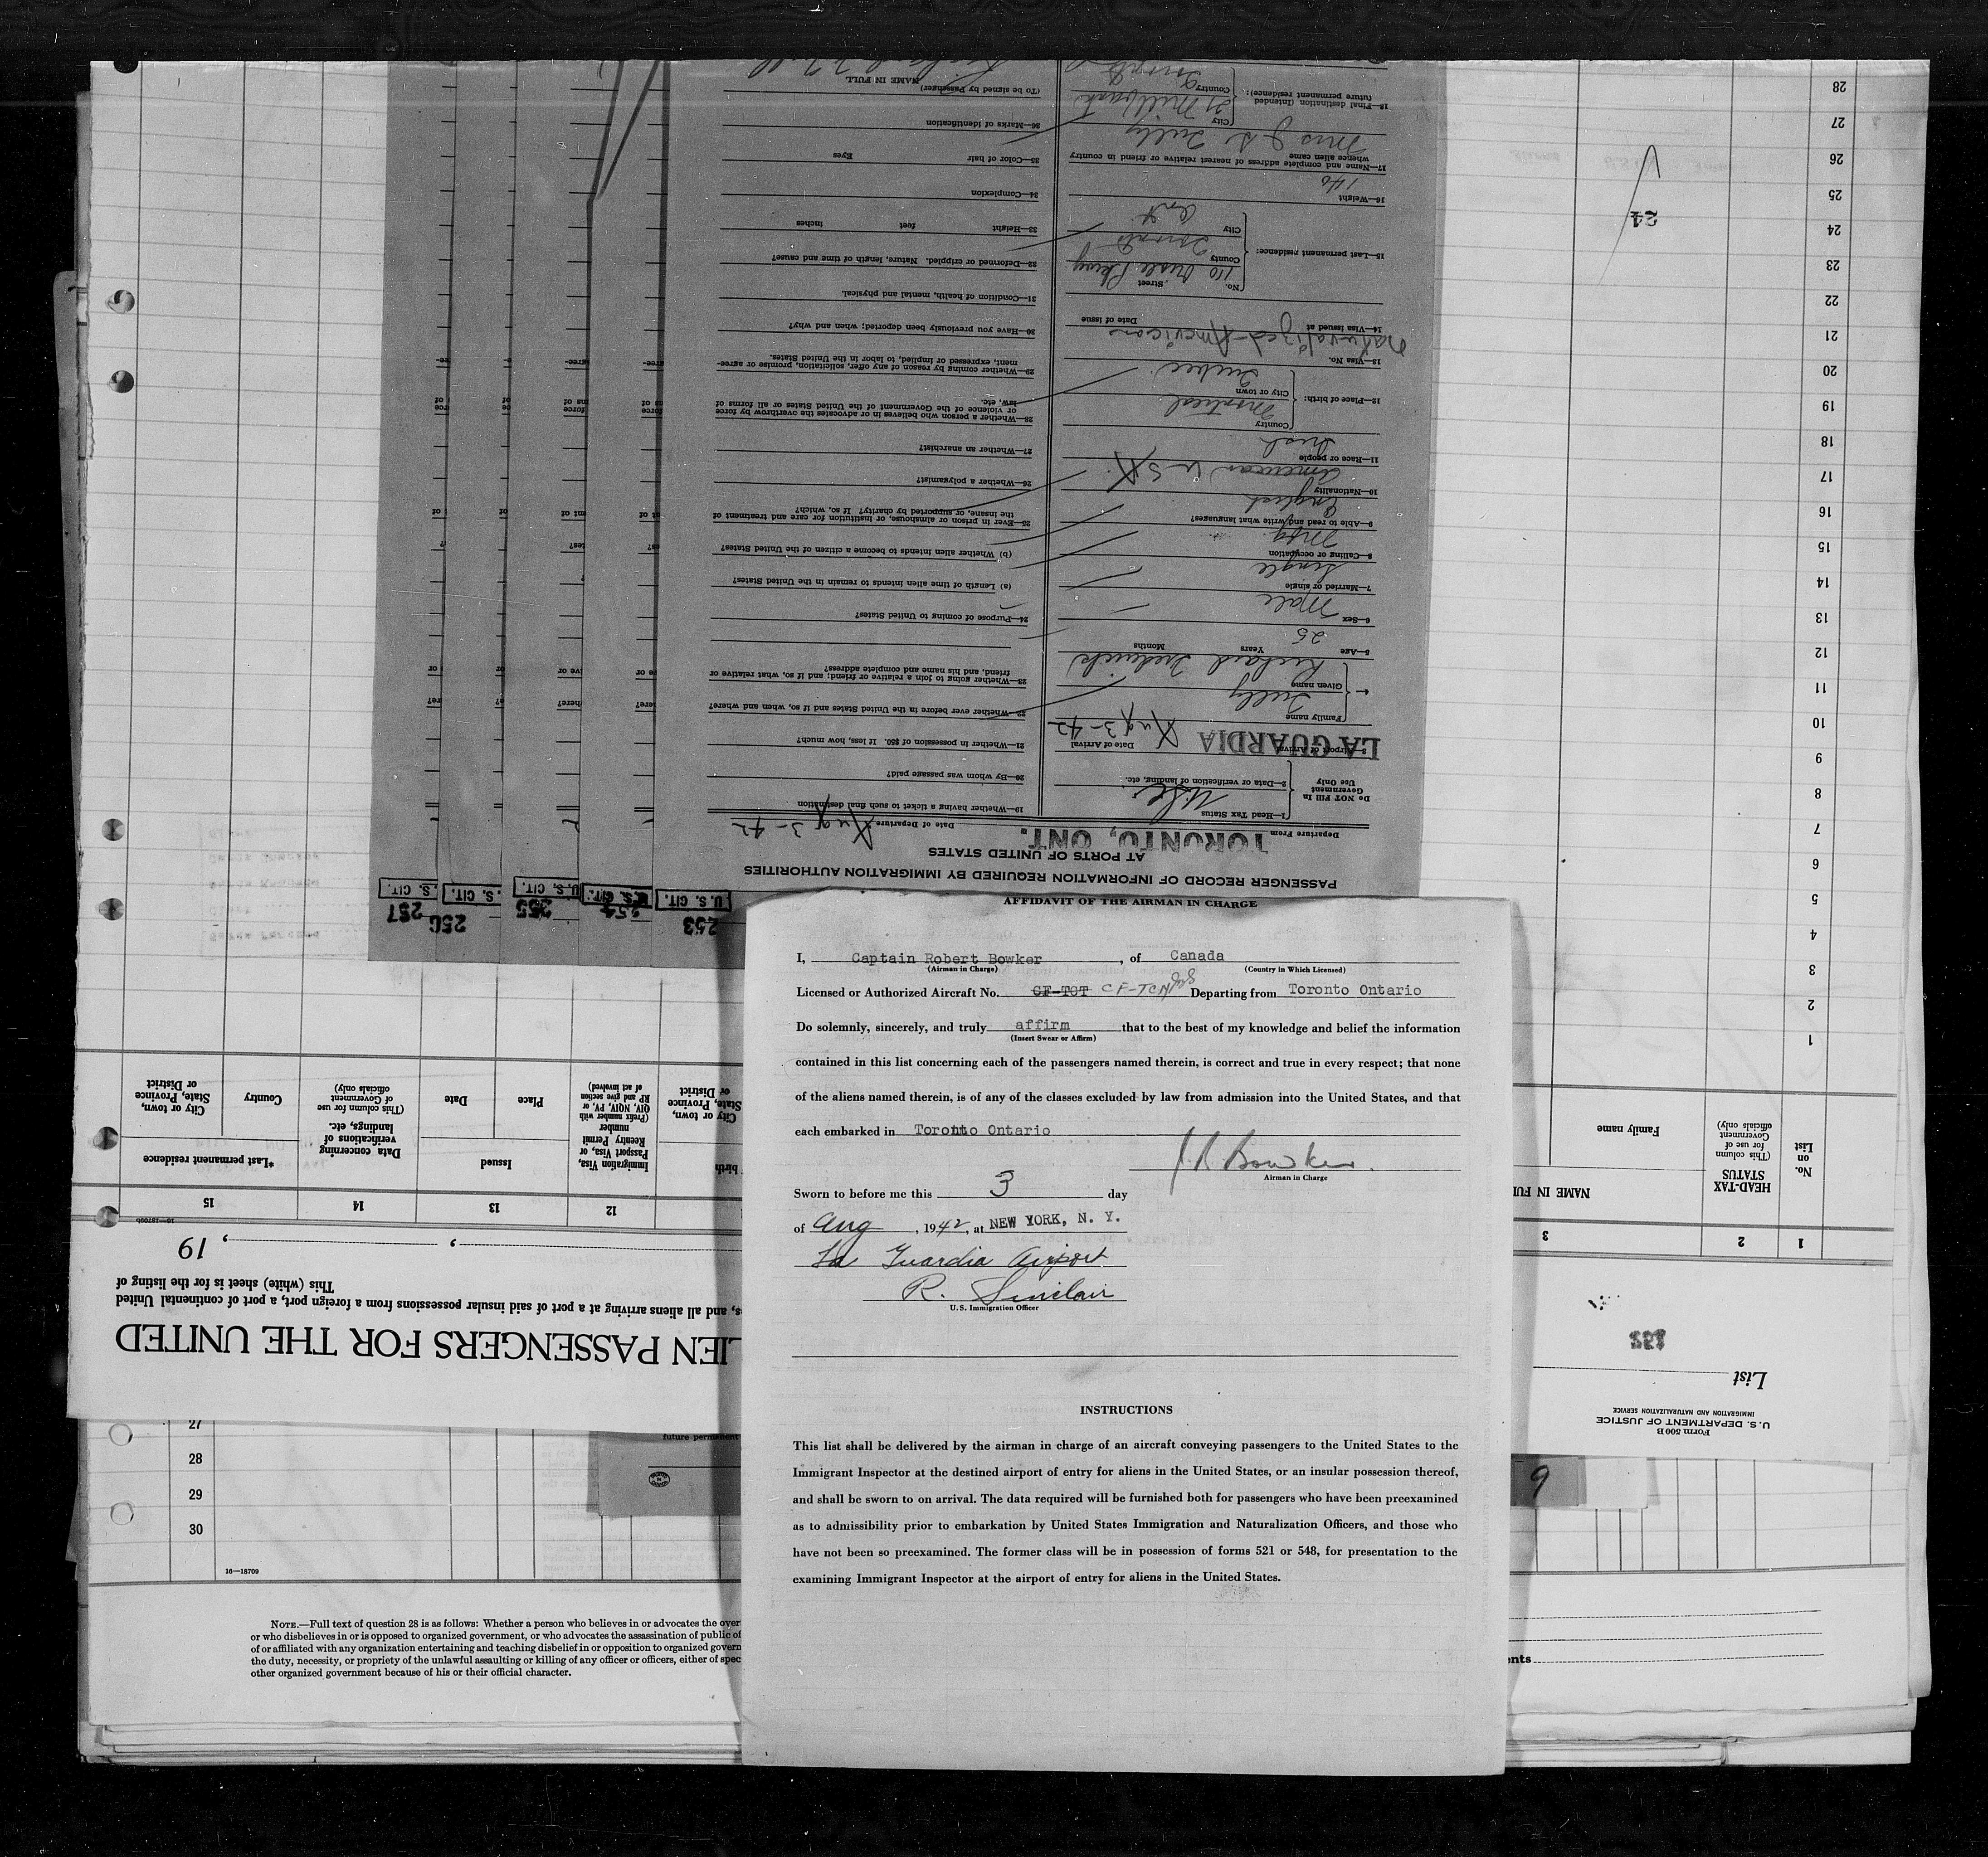 AFFIDAVIT OF THE AIRMAN IN CHARGE
I, Captain Robert Bowker, of Canada
(Airman in Charge) (Country in Which Licensed)
Licensed or Authorized Aircraft No. CF-TCT CF-TCN Departing from Toronto Ontario
Do solemnly, sincerely, and truly affirm that to the best of my knowledge and belief the information
(Insert Swear or Affirm)
contained in this list concerning each of the passengers named therein, is correct and true in every respect; that none
of the aliens named therein, is of any of the classes excluded by law from admission into the United States, and that
each embarked in Toronto Ontario
J. R. Bowker.
Airman in Charge
Sworn to before me this 3 day
of Aug, 1942, at NEW YORK, N. Y.
La Guardia Airport
R. Sinclair
U.S. Immigration Officer
INSTRUCTIONS
This list shall be delivered by the airman in charge of an aircraft conveying passengers to the United States to the
Immigrant Inspector at the destined airport of entry for aliens in the United States, or an insular possession thereof,
and shall be sworn to on arrival. The data required will be furnished both for passengers who have been preexamined
as to admissibility prior to embarkation by United States Immigration and Naturalization Officers, and those who
have not been so preexamined. The former class will be in possession of forms 521 or 548, for presentation to the
examining Immigrant Inspector at the airport of entry for aliens in the United States.
PASSENGER RECORD OF INFORMATION REQUIRED BY IMMIGRATION AUTHORITIES
AT PORTS OF UNITED STATES
Departure From TORONTO, ONT. Date of Departure Aug 3-42
Do NOT Fill In
Government
Use Only
1—Head Tax Status
2—Data or verification of landing, etc.
3—Airport of Arrival LA GUARDIA Date of Arrival Aug 3-42
4 Family name Tully
Given name Richard Frederick
5—Age 25 Years Months
6—Sex Male
7—Married or single Single
8—Calling or occupation Mfg.
9—Able to read and write what languages? English
10—Nationality American U S A.
11—Race or people Irish
12—Place of birth: Country
City or town Montreal
Quebec
13—Visa No. Naturalized-American
14—Visa issued at Date of issue
15—Last permanent residence: No. Street
110
County Toronto
City Ont
16—Weight 140
17—Name and complete address of nearest relative or friend in country
whence alien came
Mrs J S Tully
18—Final destination (Intended
future permanent residence):
City 21 Millbank
Country Toronto
19—Whether having a ticket to such final destination
20—By whom was passage paid?
21—Whether in possession of $50. If less, how much?
22—Whether ever before in the United States and if so, when and where?
23—Whether going to join a relative or friend; and if so, what relative or
friend, and his name and complete address?
24—Purpose of coming to United States?
(a) Length of time alien intends to remain in the United States?
(b) Whether alien intends to become a citizen of the United States?
25—Ever in prison or almshouse, or institution for care and treatment of
the insane, or supported by charity? If so, which?
26—Whether a polygamist?
27—Whether an anarchist?
28—Whether a person who believes in or advocates the overthrow by force
or violence of the Government of the United States or all forms of
law, etc.
29—Whether coming by reason of any offer, solicitation, promise or agree-
ment, expressed or implied, to labor in the United States.
30—Have you previously been deported; when and why?
31—Condition of health, mental and physical.
32—Deformed or crippled. Nature, length of time and cause?
33—Height feet inches
34—Complexion
35—Color of hair Eyes
36—Marks of identification
(To be signed by Passenger)
NAME IN FULL
U. S. CIT. 253
254
U.S. CIT. 255
S. CIT. 256
S. CIT. 257
Form 500 B
U.S. DEPARTMENT OF JUSTICE
IMMIGRATION AND NATURALIZATION SERVICE
List
LIEN PASSENGERS FOR THE UNITED
s, and all aliens arriving at a port of said insular possessions from a foreign port, a port of continental United
This (white) sheet is for the listing of
, , 19
16—18709b
1 2 3
12 13 14 15
No.
on
List
HEAD-TAX
STATUS
(This column
for use of
Government
officials only)
NAME IN FUL
Family name
birth
City or town,
State, Province
or District
Immigration Visa,
Passport Visa, or
Reentry Permit
number
(Prefix number with
QIV, NQIV, PV, or
RP and give section
of act involved)
Issued
Place
Date
Data concerning
verifications of
landings, etc.
(This column for use
of Government
officials only)
*Last permanent residence
Country
City or town,
State, Province
or District
1
2
3
4
5
6
7
8
9
10
11
12
13
14
15
16
17
18
19
20
21
22
23
24
25
26
27
28
24
27
28
29
30
future perman
9
16—18709
NOTE.—Full text of question 28 is as follows: Whether a person who believes in or advocates the over
or who disbelieves in or is opposed to organized government, or who advocates the assassination of public of
of or affiliated with any organization entertaining and teaching disbelief in or opposition to organized govern
the duty, necessity, or propriety of the unlawful assaulting or killing of any officer or officers, either of spec
other organized government because of his or their official character.
ents